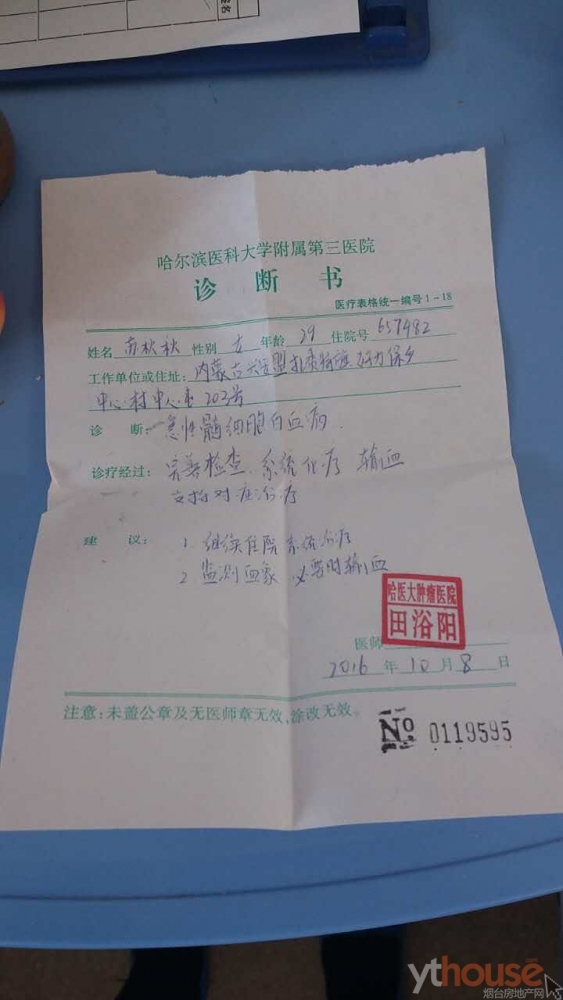 哈尔滨医科大学附属第三医院
诊 断 书
医疗表格统一编号1-18
姓名 苏秋秋 性别 女 年龄 29 住院号 657482
工作单位或住址: 内蒙古兴安盟扎赉特旗 好力保乡
中心村中心屯 203号
诊 断: 急性髓细胞白血病.
诊疗经过: 完善检查、系统化疗 输血
支持对症治疗
建 议: 1. 继续住院系统治疗
2. 监测血象 必要时输血
哈医大肿瘤医院
田浴阳
医师
2016 年 10 月 8 日
注意:未盖公章及无医师章无效,涂改无效。
No 0119595
ythouse
烟台房地产网